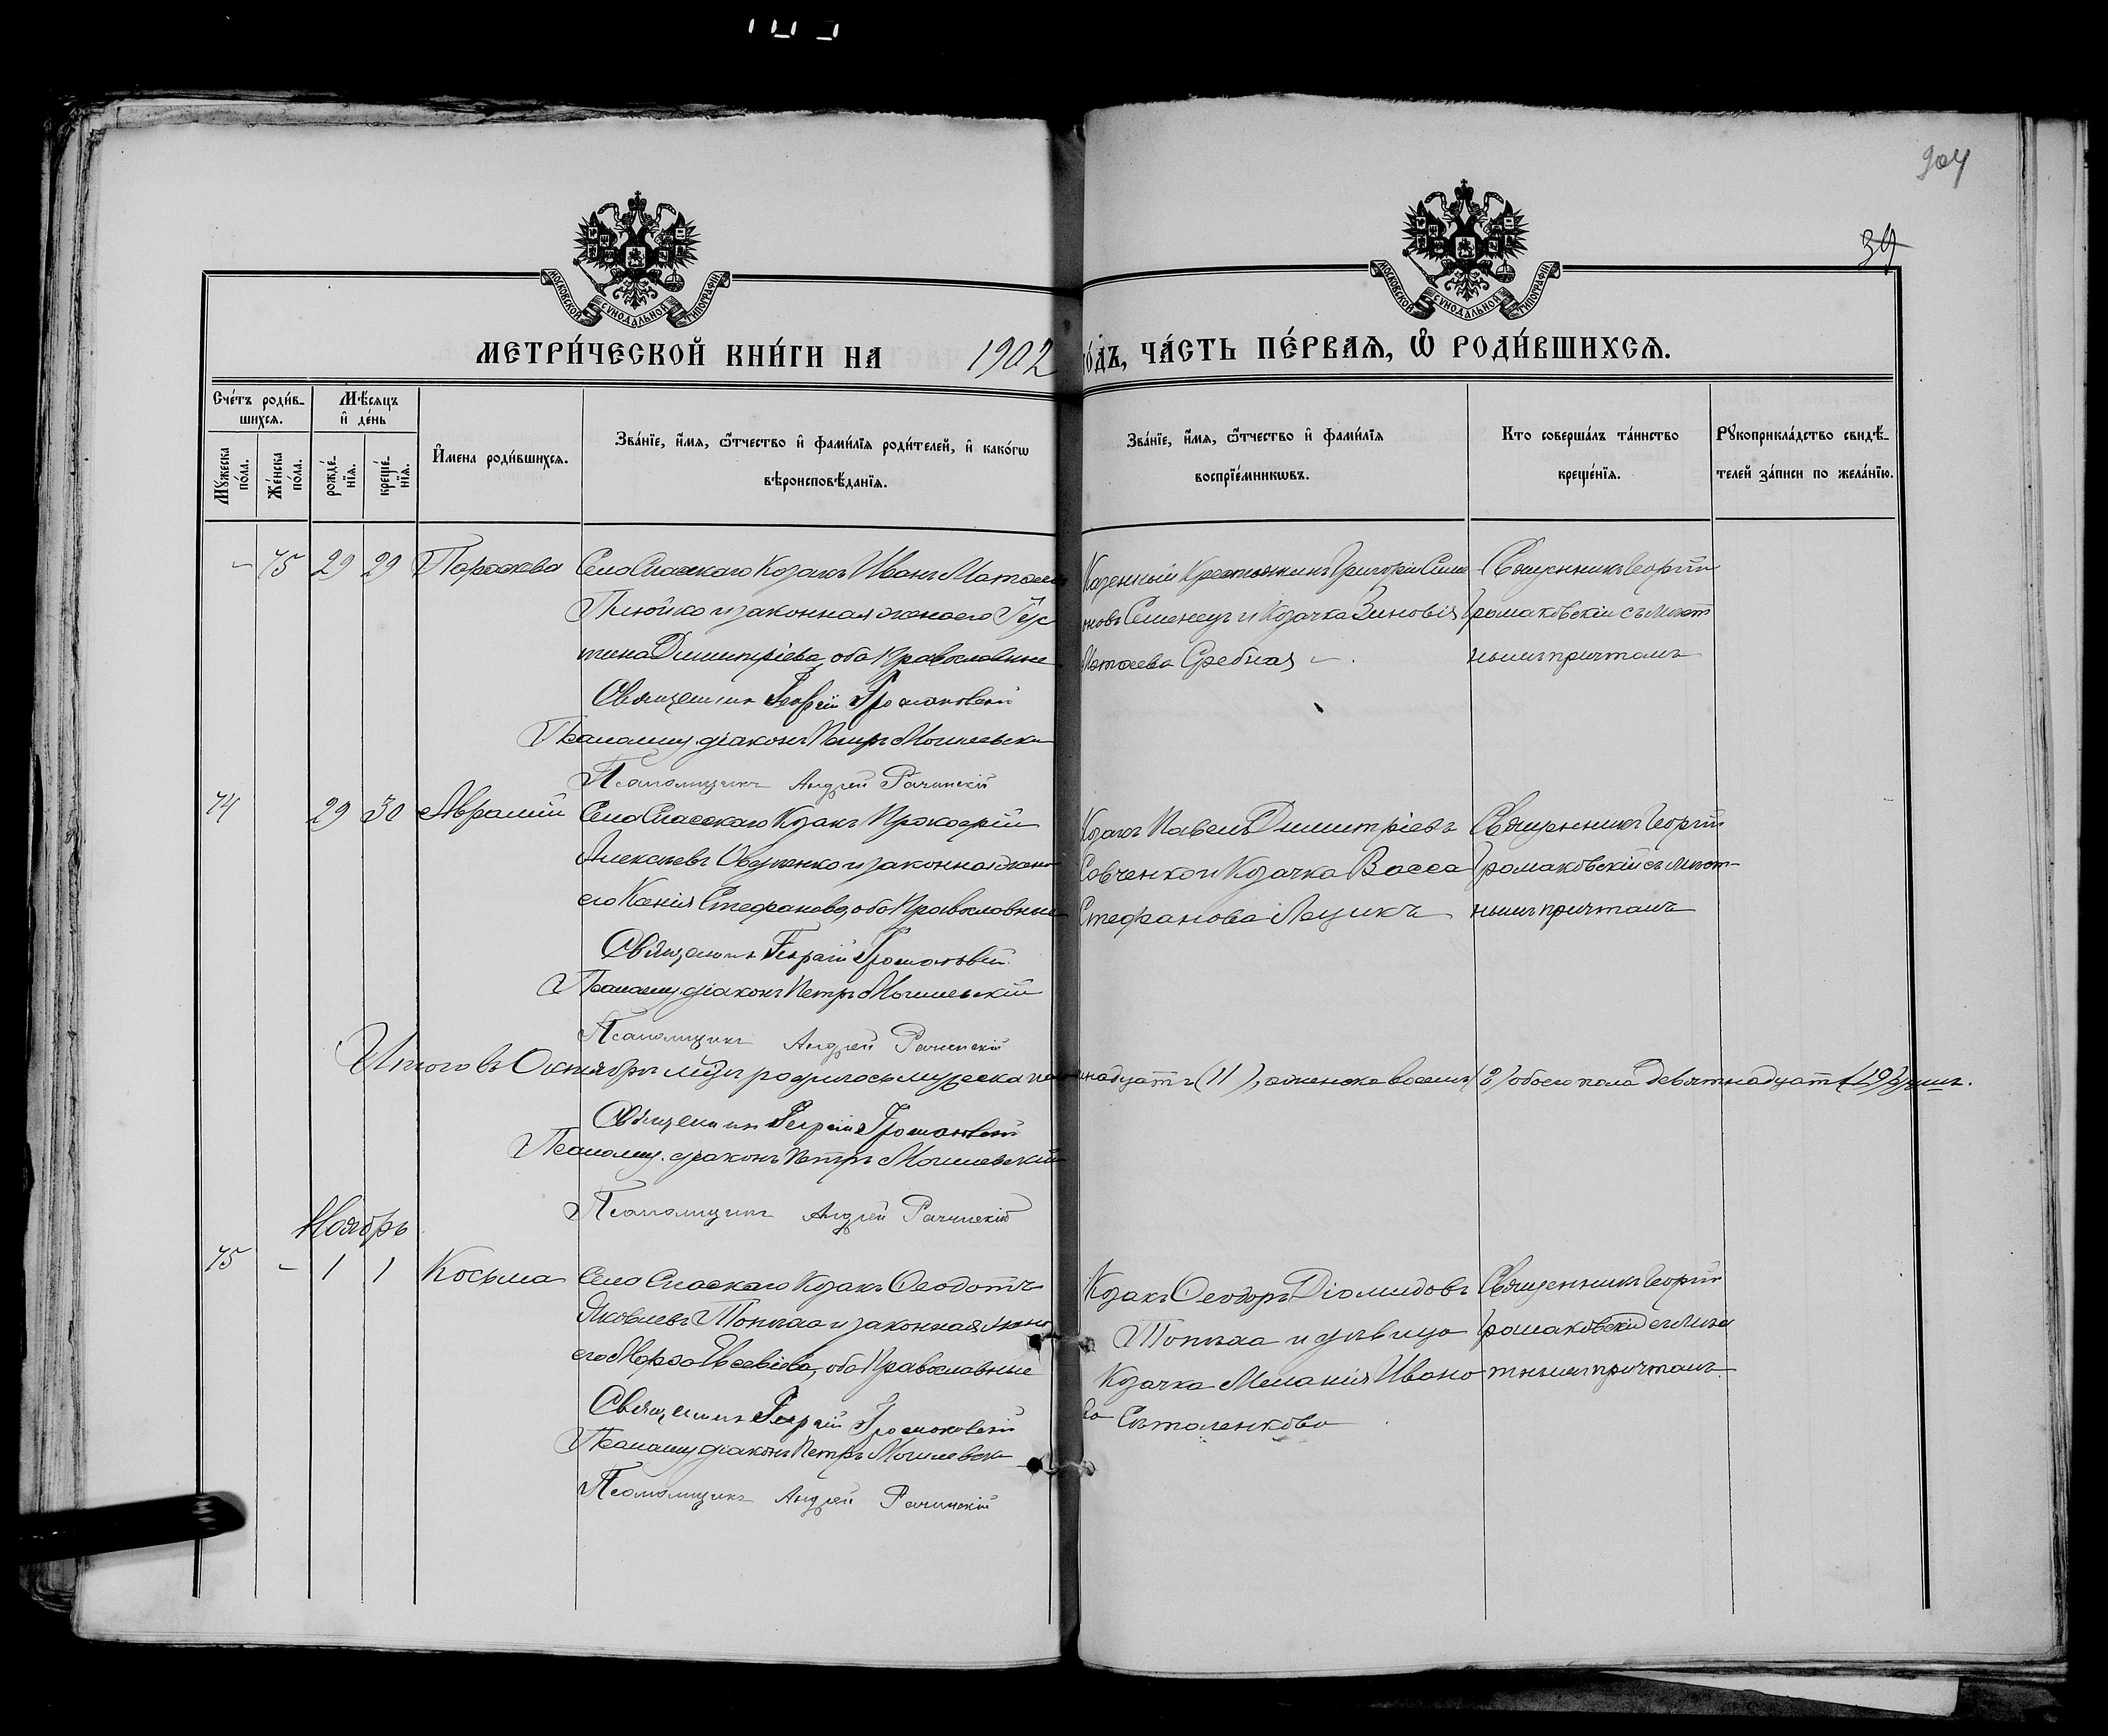 904
39
МОСКОВСКОЙ СѴНОДАЛЬНОЙ ТИПОГРАФІИ
МОСКОВСКОЙ СѴНОДАЛЬНОЙ ТИПОГРАФІИ
МЕТРИ́ЧЕСКОЙ КНИ́ГИ НА 1902 ГО́ДЪ, ЧА́СТЬ ПЕ́РВАѦ, Ѽ РОДИ́ВШИХСѦ.
Сче́тъ роди́в-
шихсѧ.
Мѣ́сѧцъ
и҆ де́нь
Мꙋ́жеска по́ла.
Же́нска по́ла.
рожде́-
нїѧ.
креще́-
нїѧ.
И҆мена роди́вшихсѧ.
Зва́нїе, и҆́мѧ, ѻ҆́тчество и҆ фами́лїѧ роди́телей, и҆ како́гѡ
вѣроисповѣ́данїѧ.
Зва́нїе, и҆́мѧ, ѻ҆́тчество и҆ фами́лїѧ
воспрїе́мникѡвъ.
Кто соверша́лъ та́инство
креще́нїѧ.
Рꙋкоприкла́дство свидѣ́-
телей за́писи по жела́нїю.
- 75 29 29 Параскева
Села Спаскаго Козакъ Иванъ Матѳеевъ
Плюйко и законная жена его Іус
тина Димитріева, оба Православные
Священникъ Георгій Громаковскій
Псаломщ. діаконъ Петръ Могилевскій
Псаломщикъ Андрей Рачинскій
Казенный Крестьянинъ Григорій Симе
оновъ Семенецъ и Козачка Зиновія
Матѳеева Сребная
Священникъ Георгій
Громаковскій съ мѣст
нымъ причтомъ
74 29 30 Аврамій
Села Спасскаго Козакъ Прокофій
Алексѣевъ и законная жена
его Ксенія Стефанова, оба Православные
Священникъ Георгій Громаковскій
Псаломщ. діаконъ Петръ Могилевскій
Псаломщикъ Андрей Рачинскій
Козакъ Павелъ Димитріевъ
Савченко и Козачка Васса
Стефанова Лещикъ
Священникъ Георгій
Громаковскій съ мѣст-
нымъ причтомъ
Итого въ Октябрѣ м-цѣ родилось мужеска надцать (11), а женска восемь (8) обоего пола девятнадцать (19) душъ.
Священникъ Георгій Громаковскій
Псаломщ. діаконъ Петръ Могилевскій
Псаломщикъ Андрей Рачинскій
Ноябрь
75 - 1 1 Косьма
Села Спаскаго Козакъ Ѳеодотъ
Яковлевъ Топчаа и законная жена
его Марѳа Евсевіева, оба Православные
Священникъ Георгій Громаковскій
Псаломщ діаконъ Петръ Могилевск
Псаломщикъ Андрей Рачинскій
Козакъ Ѳеодоръ Діомидовъ
Топчаа и дѣвица
Козачка Меланія Ивано
ва
Священникъ Георгій
Громаковскій съ мѣс
тнымъ причтомъ